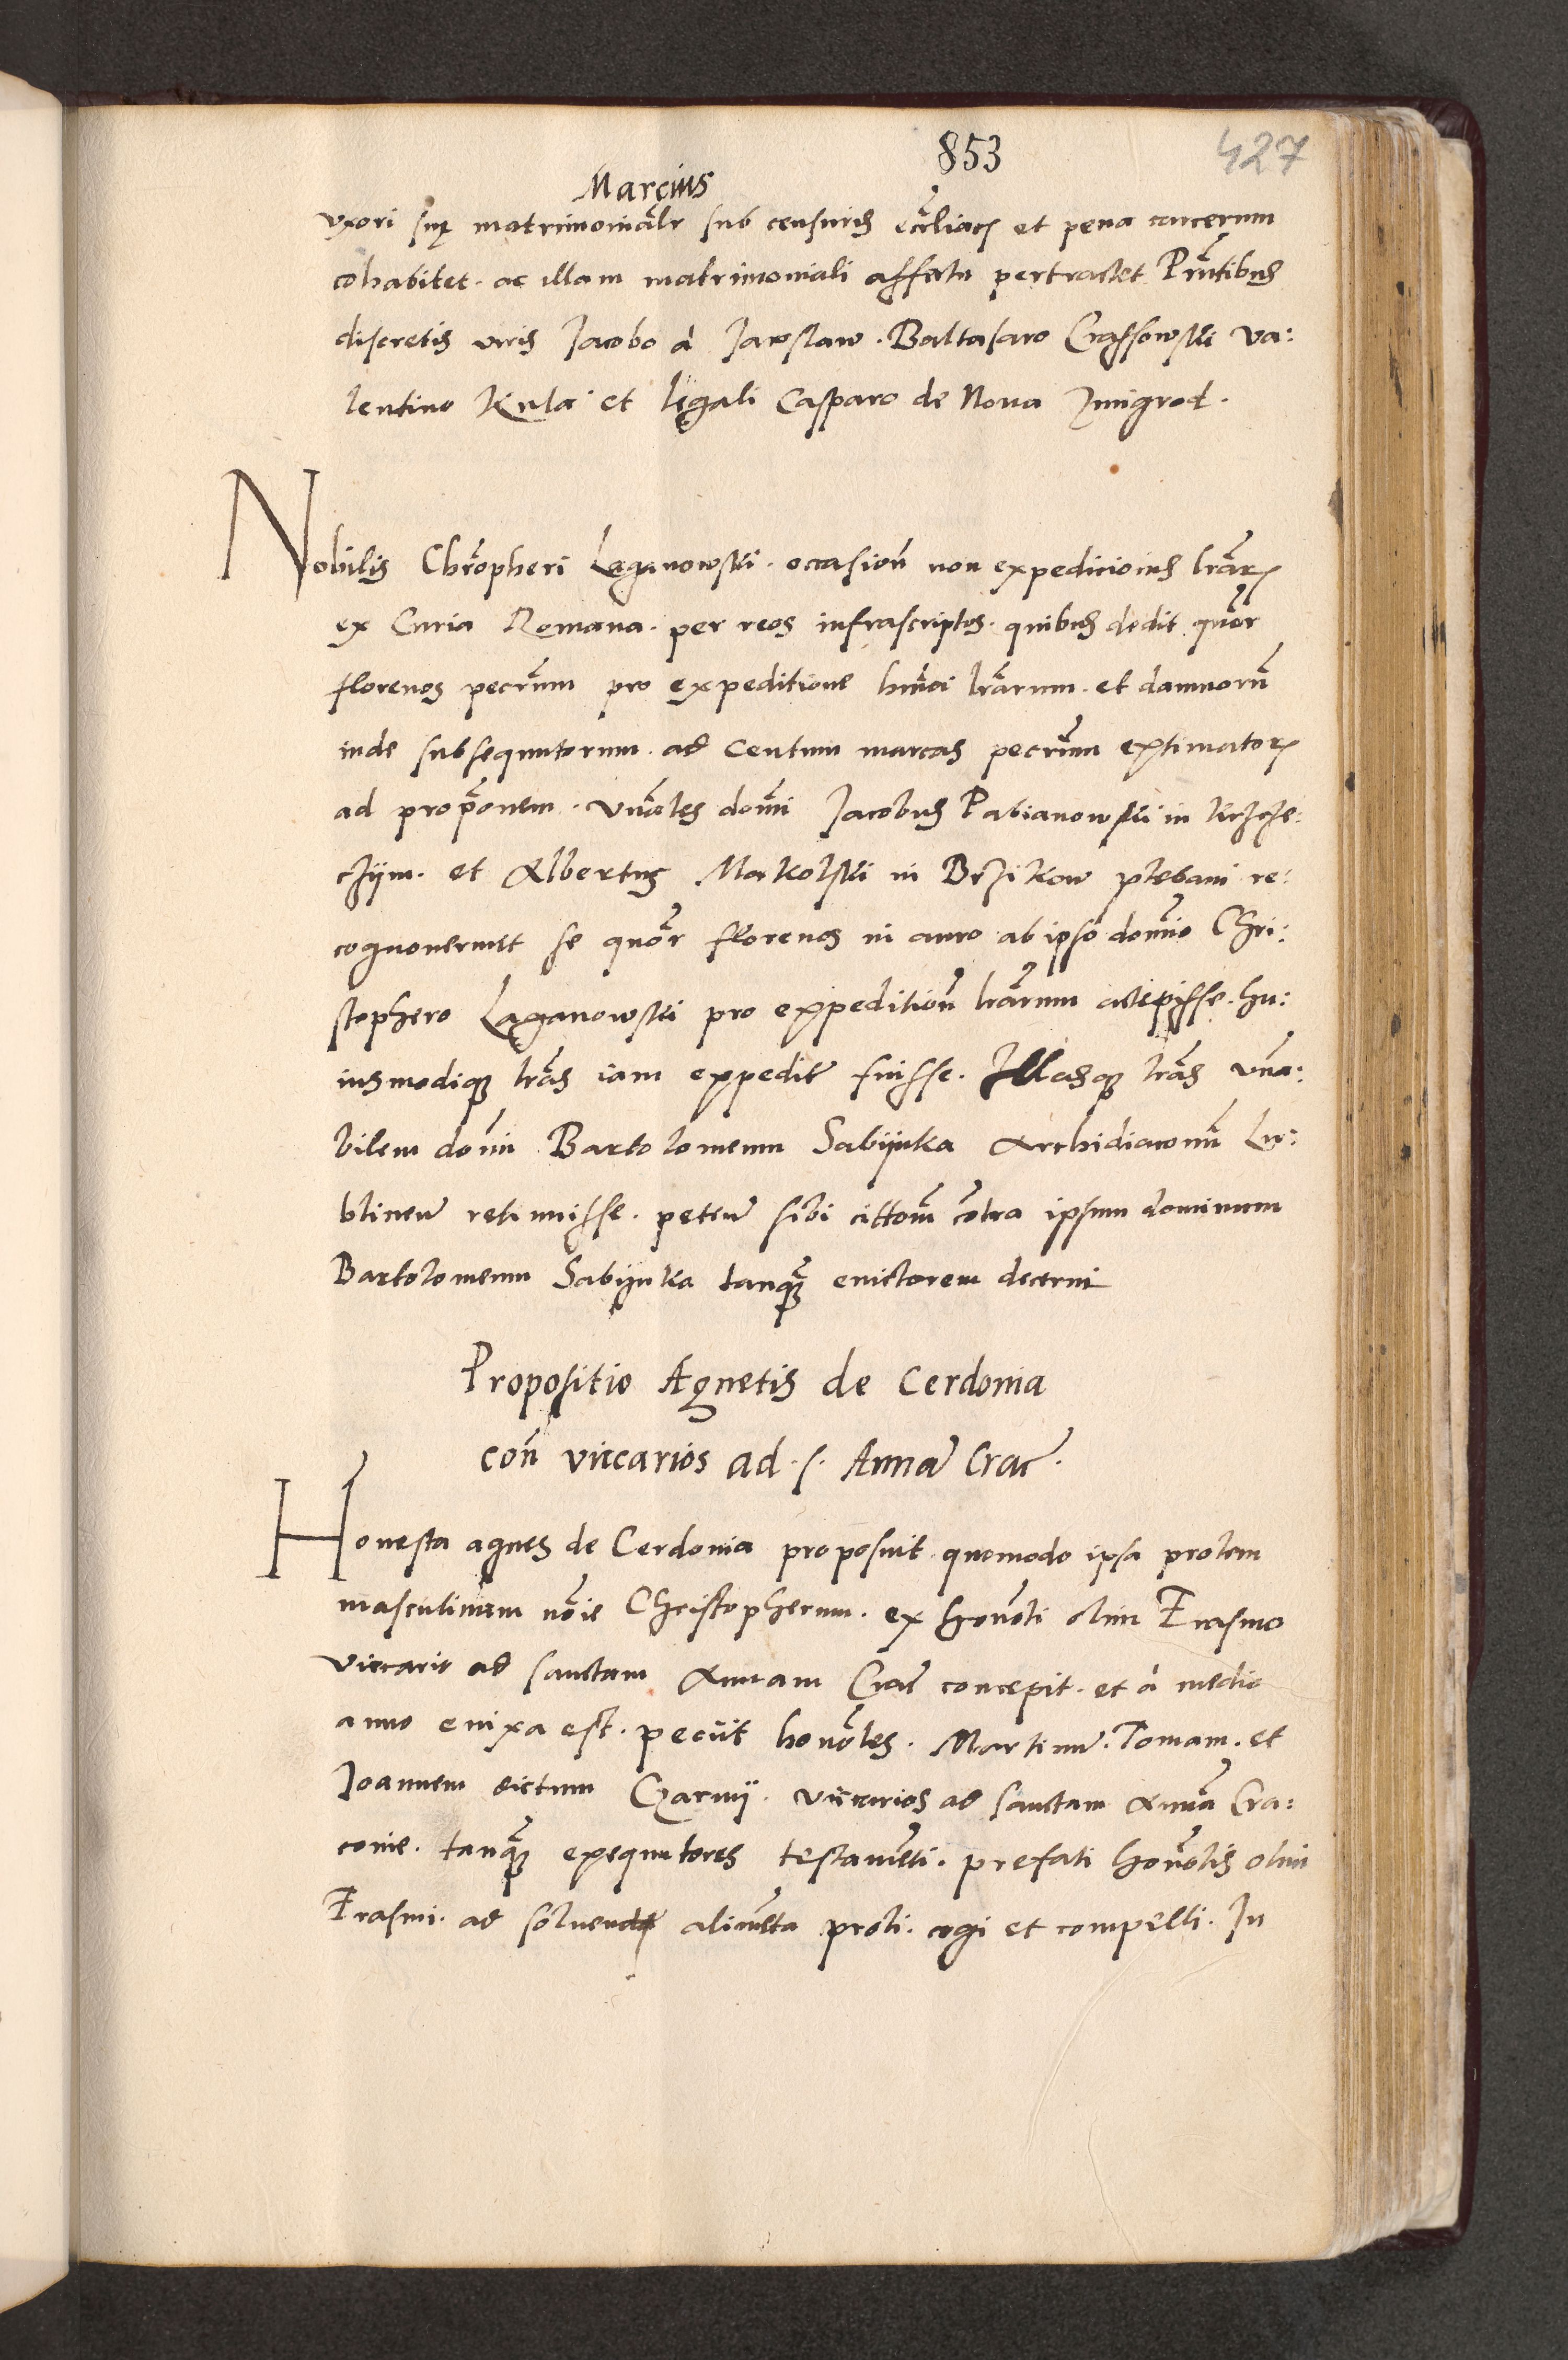 853
427
Marcius
vxori suę matrimonialr sub censuris ecclliacȝ et pena carcerum
cohabitet. ac illam matrimoniali affectu pertractet Pñtibus
discretis viris Jacobo à Jaroslaw. Baltasaro Crassowski Va:
lentino Kula et legali Casparo de Noua Zmigrod.
Nobilis Chrõpheri Laganowski. occasioñ non expedicionis lrãrȝ
ex Curia Romana. per reos infrascriptos. quibus dedit quõr
florenos pecũm pro expeditione hmõi lrãrum. et damnorũ
inde subsequutorum. ad centum marcas pecũm extimatorȝ
ad propõonem. Vnãles domĩ Jacobus Pabianowski in
czijm. et Albertus Makolski in Brzikow plebani re:
cognouerunt se quõr florenos in auro ab ipso domĩo Chri:
stophero Laganowski pro expeditioñ lrãrum accepisse. hu:
iusmodiqȝ lrãs iam expedit̃ fuisse. Illasqȝ lrãs Vña:
bilem domĩ Bartolomeum Sabijnka Archidiaconũ Lu:
blineñ retinuisse. peteñ sibi cittoñm cõtra ipsum dominum
Bartolomeum Sabijnka tanqȝ euictorem decerni
Propositio Agnetis de Cerdonia
coñ viccarios ad. s. Annã Crac̃.
Honesta agnes de Cerdonia proposuit quomodo ipsa prolem
masculinam nõie Christopherum. ex honõli olim Erasmo
viccario ad sanctam Annam Crac̃ concepit. et à medio
anno enixa est. peciit honõles. Martinũ. Tomam. et
Joannem dictum Czarnij. viccarios ad sanctam Annã Cra:
couie. tanqȝ exequutores testamẽti. prefati honõlis olim
Erasmi. ad soluenda alimẽta proli. cogi et compelli. In